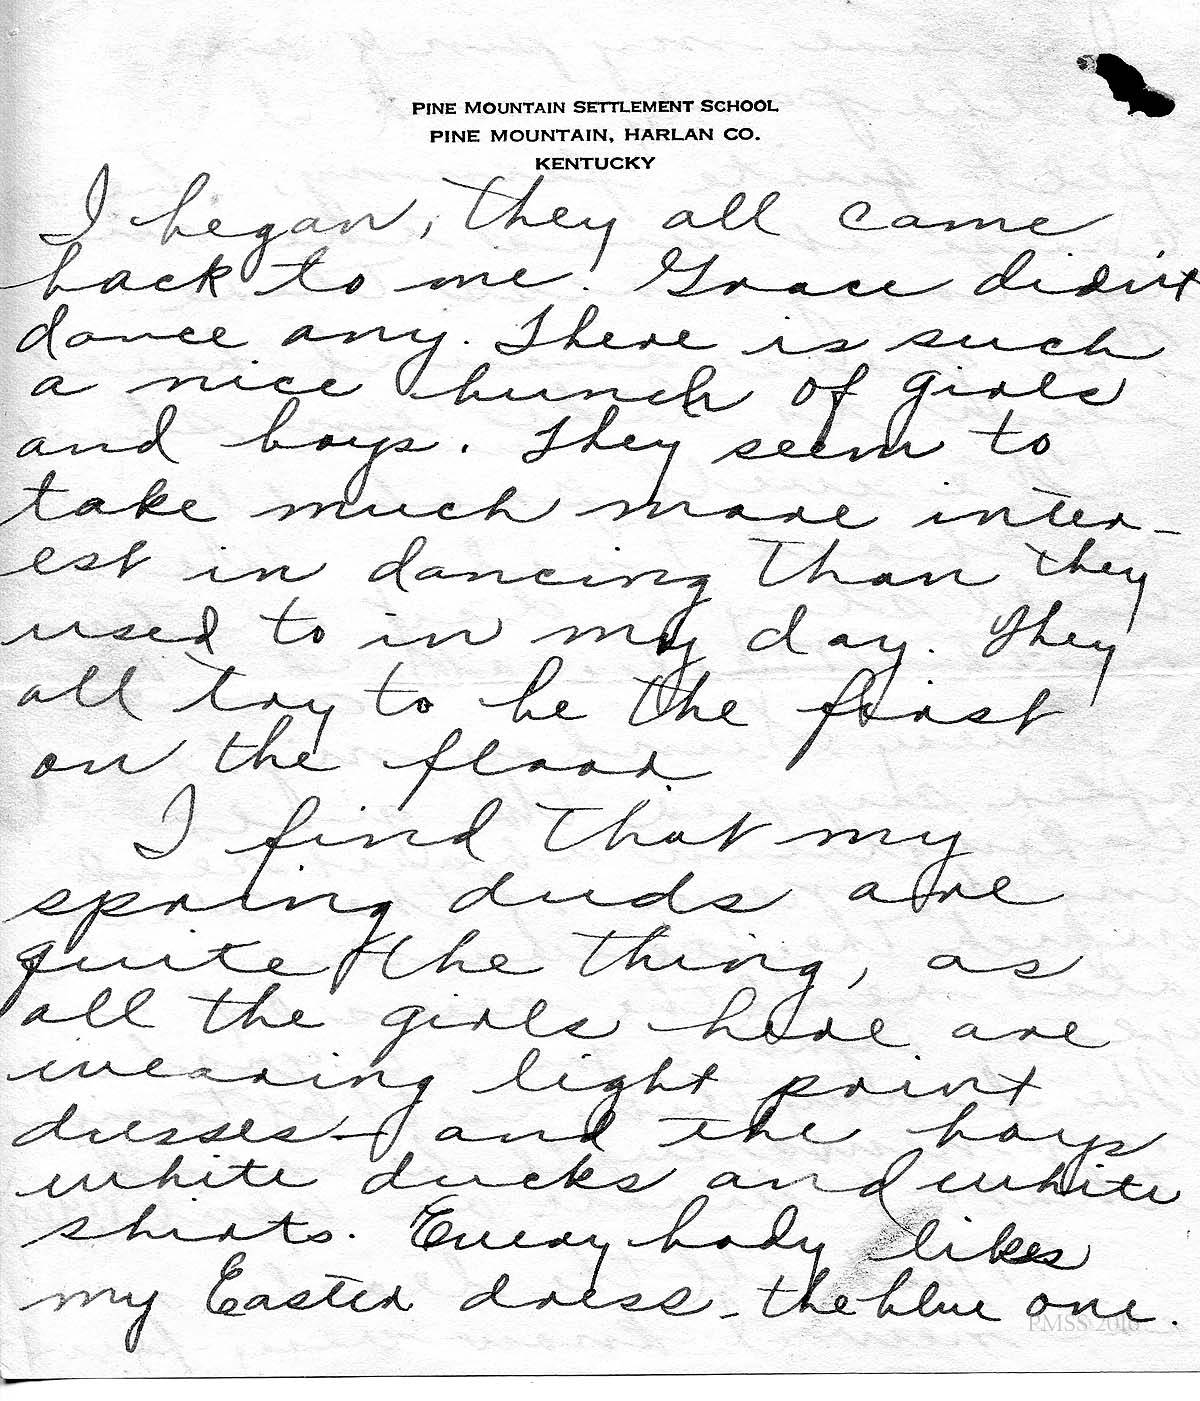 PINE MOUNTAIN SETTLEMENT SCHOOL
PINE MOUNTAIN, HARLAN CO.
KENTUCKY
I began, they all came
back to me. Grace didn't
dance any. There is such
a nice bunch of girls
and boys. They seem to
take much more inter-
est in dancing than they
used to in my day. They
all try to be the first
on the floor
I find that my
spring duds are
quite the thing, as
all the girls here are
wearing light print
dresses - and the boys
white ducks and white
shirts. Every body likes
my Easter dress - the blue one.
PMSS 2016